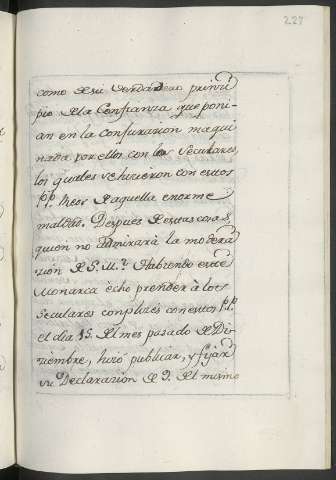 227
como de su verdadero princi
pio de la Confianza que poni-
an en la Conjuracion maqui
nada por ellos con los Seculares,
los quales se hicieron con estos
P.P. Reos de aquella enorme
maldad. Despues de estas cosas,
quien no admirará la modera
zion de S. M.? Habiendo este
Monarca echo prender à los
Seculares conplizes con estos P.P.
el dia 13. del mes pasado de Di-
ziembre, hizo publicar, y fijar
su Declarazion de 9. del mismo